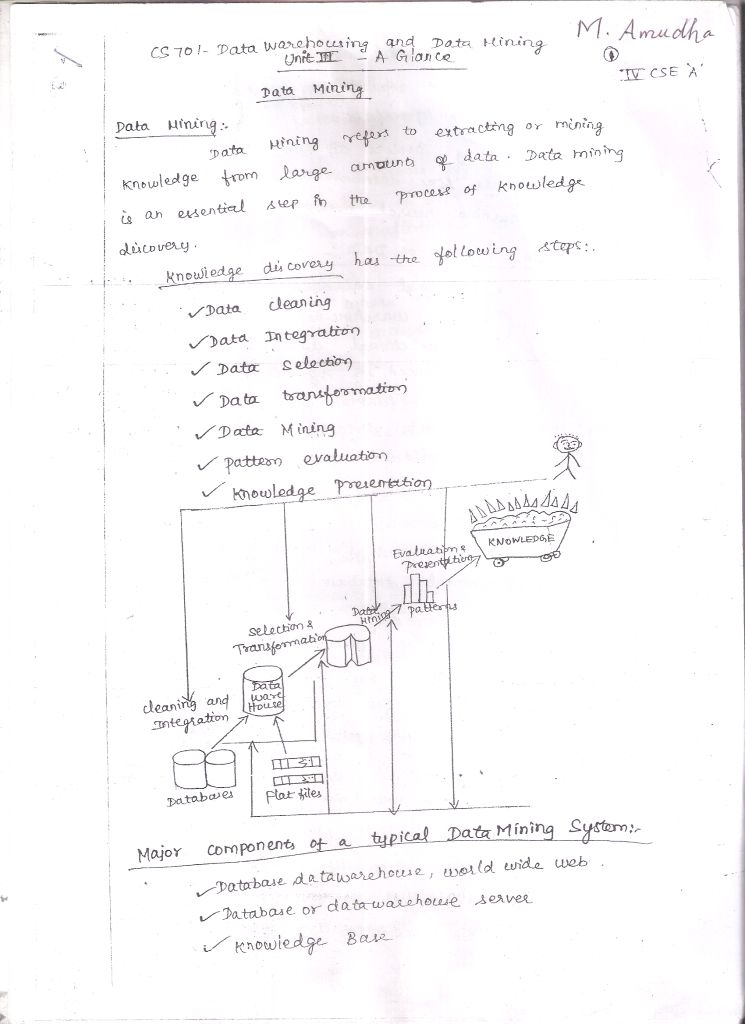 M. Amudha
CS701- Data Warehousing and Data Mining
Unit III - A Glance
①
IV CSE 'A'
Data Mining
Data Mining:-
Data Mining refers to extracting or mining
Knowledge from large amounts of data. Data mining
is an essential step in the process of knowledge
discovery.
Knowledge discovery has the following steps:-
✓ Data cleaning
✓ Data Integration
✓ Data Selection
✓ Data transformation
✓ Data Mining
✓ pattern evaluation
✓ Knowledge presentation
KNOWLEDGE
Evaluation &
Presentation
Data
Mining
patterns
Selection &
Transformation
Data
Ware
House
cleaning and
Integration
Databases
Flat files
Major components of a typical Data Mining System:-
✓ Database datawarehouse, world wide web.
✓ Database or datawarehouse server
✓ Knowledge Base